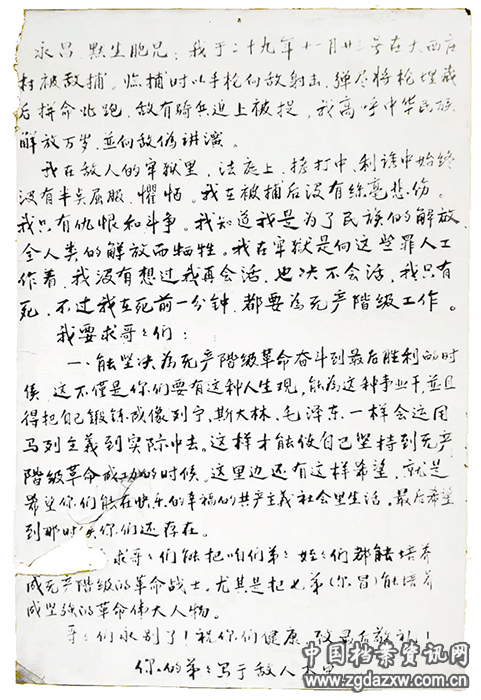 永昌、默生胞兄：我于二十九年十一月廿三号在大西庄
村被敌捕。临捕时以手枪向敌射击，弹尽将枪埋藏
后拼命北跑，敌有骑兵追上被捉，我高呼中华民族
解放万岁，并向敌伪讲演。
我在敌人的牢狱里，法庭上，拷打中，利诱中始终
没有半点屈服，惧怕。我在被捕后没有丝毫悲伤。
我只有仇恨和斗争。我知道我是为了民族的解放
全人类的解放而牺牲。我在牢狱是向这些罪人工
作着，我没有想过我再会活，也决不会活，我只有
死，不过我在死前一分钟，都要为无产阶级工作。
我要求哥々们：
一、能坚决为无产阶级革命奋斗到最后胜利的时
候，这不仅是你们要有这种人生观，能为这种事业干，并且
得把自己锻铄成像列宁、斯大林、毛泽东一样会运用
马列主义到实际中去。这样才能使自己坚持到无产
阶级革命成功的时候。这里边还有这样希望，就是
希望你们能在快乐的幸福的共产主义社会里生活。最后希望
到那时候你们还存在。
求哥々们能把咱们弟々姪々们都能培养
成无产阶级的革命战士。尤其是把七弟(尔昌)能培养
成坚强的革命伟大人物。
哥々们永别了！祝你们健康 致最后敬礼！
你的弟々写于敌人
中国档案资讯网
www.zgdazxw.com.cn